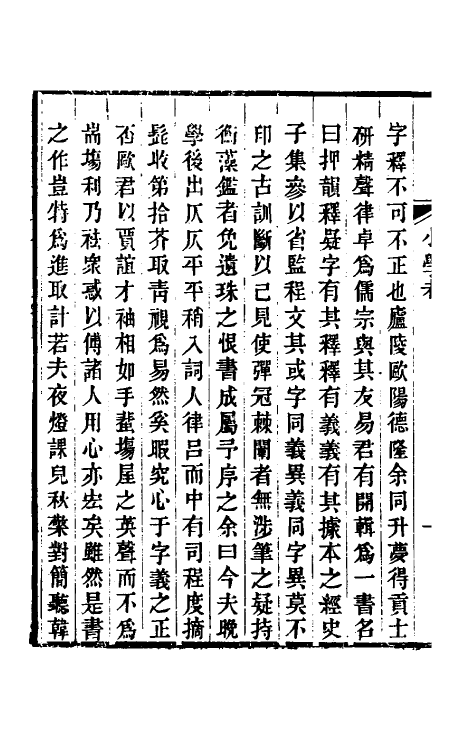 字釋不可不正也廬陵歐陽德隆余同升薆得貢士
研精聲律卓爲儒宗與其友易君有開輯爲一書名
曰押韻釋疑字有其釋釋有義義有其據本之經史
子集參以省監程文其或字同義異義同字異莫不
印之古訓斷以己見使彈冠棘闈者無涉筆之疑持
衡藻鑑者免遺珠之恨書成屬予序之余曰今夫晚
學後出仄仄平平稍入詞人律呂而中有司程度摘
髭收第拾芥取靑視爲易然奚暇究心于字義之正
否歐君以賈誼才袖相如手蜚塲屋之英聲而不爲
耑塲利乃祛衆惑以傅諸人用心亦宏矣雖然是書
之作豈特爲進取計若夫夜燈課兒秋檠對簡聽韓
小學考
一